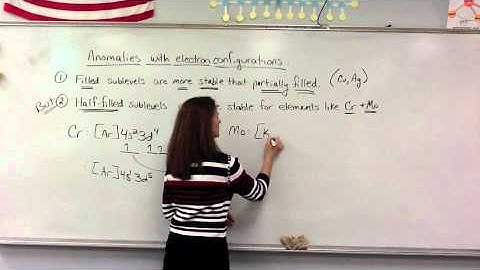 Anomalies with electron configurations
① Filled sublevels are more stable that partially filled. (Cu, Ag)
But ② Half-filled sublevels stable for elements like Cr + Mo
Cr: [Ar]4s²3d⁴ Mo: [K
1 1 1
[Ar]4s¹3d⁵